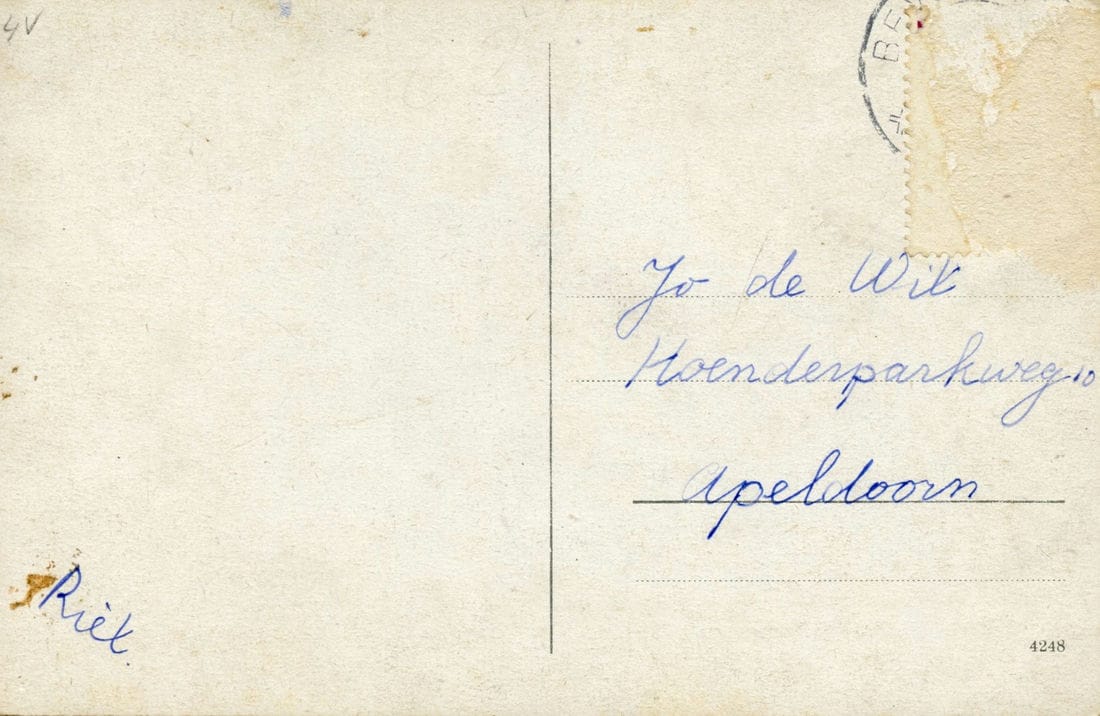 4V
BE
Jo de Wit
Hoenderparkweg 10
Apeldoorn
Riet.
4248